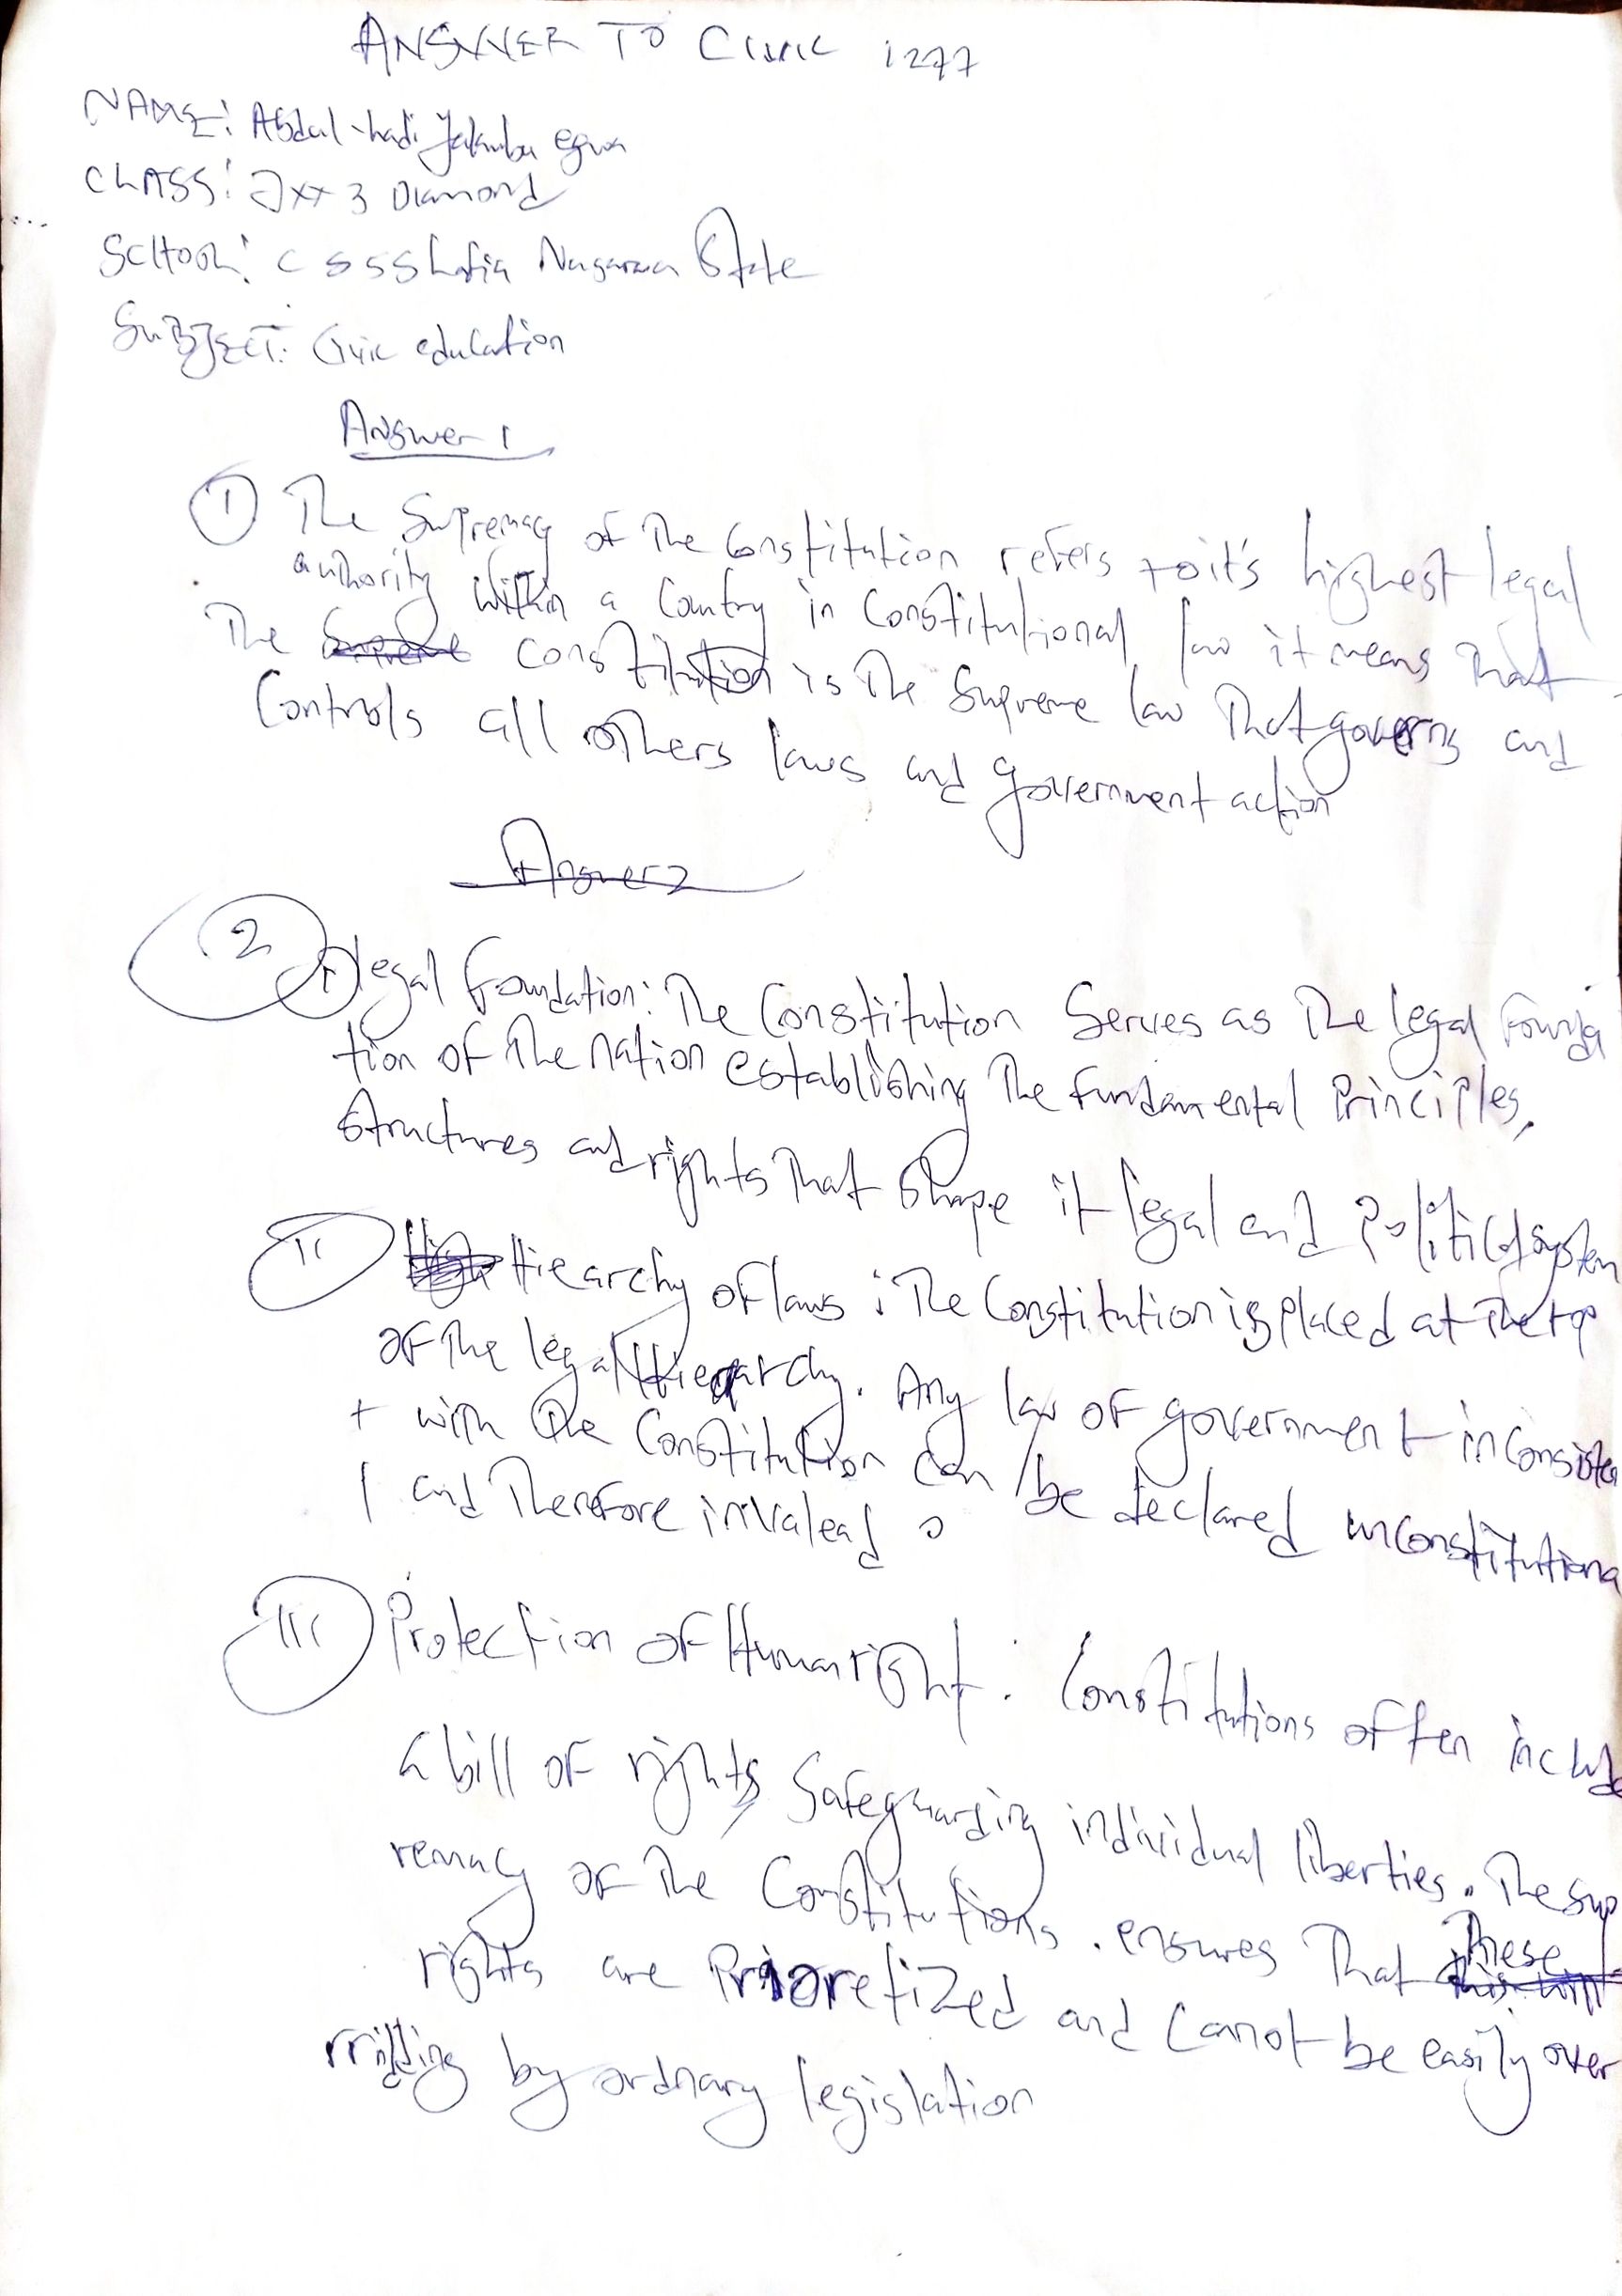 ANSWER TO CIVIC 1277
NAME: Abdul-hadi Yakubu egwa
CLASS: Jxx 3 Diamond
SCHOOL: C S S S Lafia Nasarawa State
SUBJECT: Civic education
Answer 1
① The Supremacy of The Constitution refers to it's highest legal
authority within a Country in Constitutional law it means That
The Supreme constitution is The Supreme law That governs and
Controls all others laws and government action
Answer 2
2 I) legal Foundation: The Constitution Serves as The legal Founda
tion of The nation establishing The Fundamental Principles,
Structures and rights That Shape it legal and Political System
II Hiearchy of laws : The Constitution is placed at The top
of The legal Hierarchy. Any law of government inconsisten
t with The Constitution can be declared unconstitutiona
l and Therefore invalead
III Protection of Human right : Constitutions often include
a bill of rights, Safeguarding individual liberties. The Sup
remacy of The Constitutions. ensures That These
rights are Prioretized and Cannot be easily over
rridding by ordnary legislation